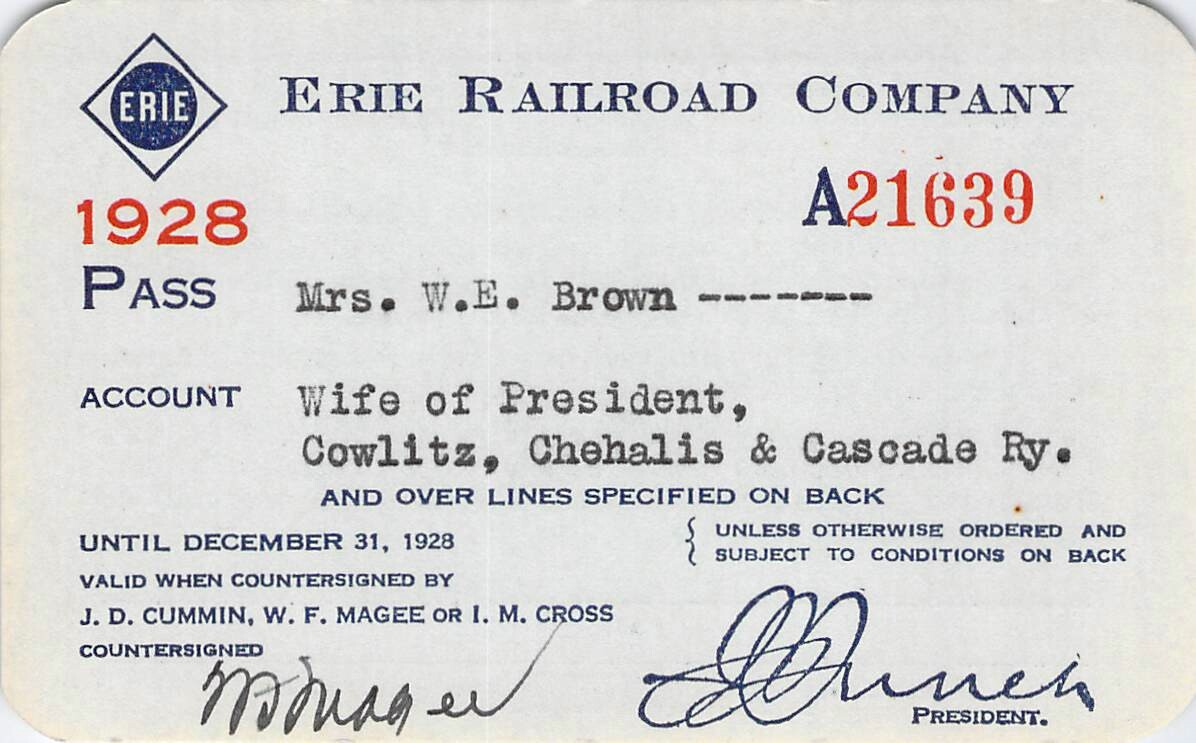 ERIE
ERIE RAILROAD COMPANY
A21639
1928
PASS Mrs. W.E. Brown -------
ACCOUNT Wife of President,
Cowlitz, Chehalis & Cascade Ry.
AND OVER LINES SPECIFIED ON BACK
UNTIL DECEMBER 31, 1928
UNLESS OTHERWISE ORDERED AND
SUBJECT TO CONDITIONS ON BACK
VALID WHEN COUNTERSIGNED BY
J. D. CUMMIN, W. F. MAGEE OR I. M. CROSS
COUNTERSIGNED
Magee
PRESIDENT.